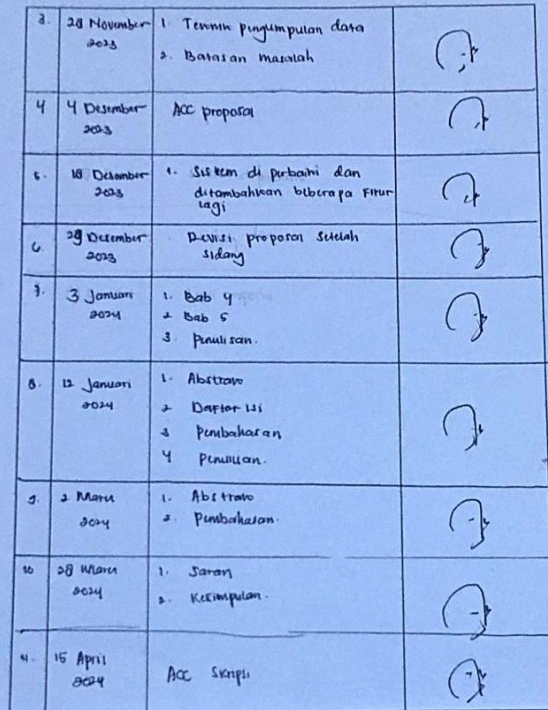 3. 28 November 2023
1. Teknik pengumpulan data
2. Batasan masalah
4 4 Desember 2023
ACC proposal
5. 18 Desember 2023
1. Sistem di perbaiki dan
ditambahkan beberapa Fitur
lagi
6. 29 Desember 2023
Revisi proposal setelah
sidang
7. 3 Januari 2024
1. Bab 4
2 Bab 5
3. Penulisan.
8. 12 Januari 2024
1. Abstrak
2 Daftar isi
3 Pembahasan
4 Penulisan.
9. 2 Maret 2024
1. Abstrak
2. Pembahasan.
10 28 Maret 2024
1. Saran
2. Kesimpulan.
11. 15 April 2024
ACC Skripsi